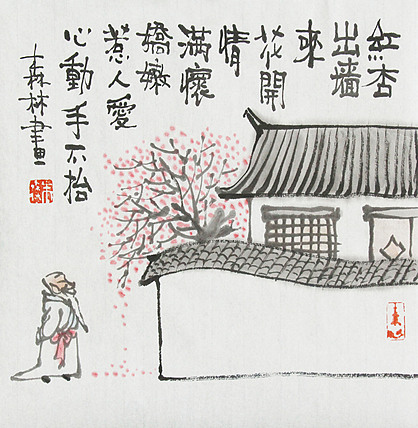 紅杏
出墙
來
花開
情
满懷
嬌嫩
惹人愛
心動手不抬
大森林畫